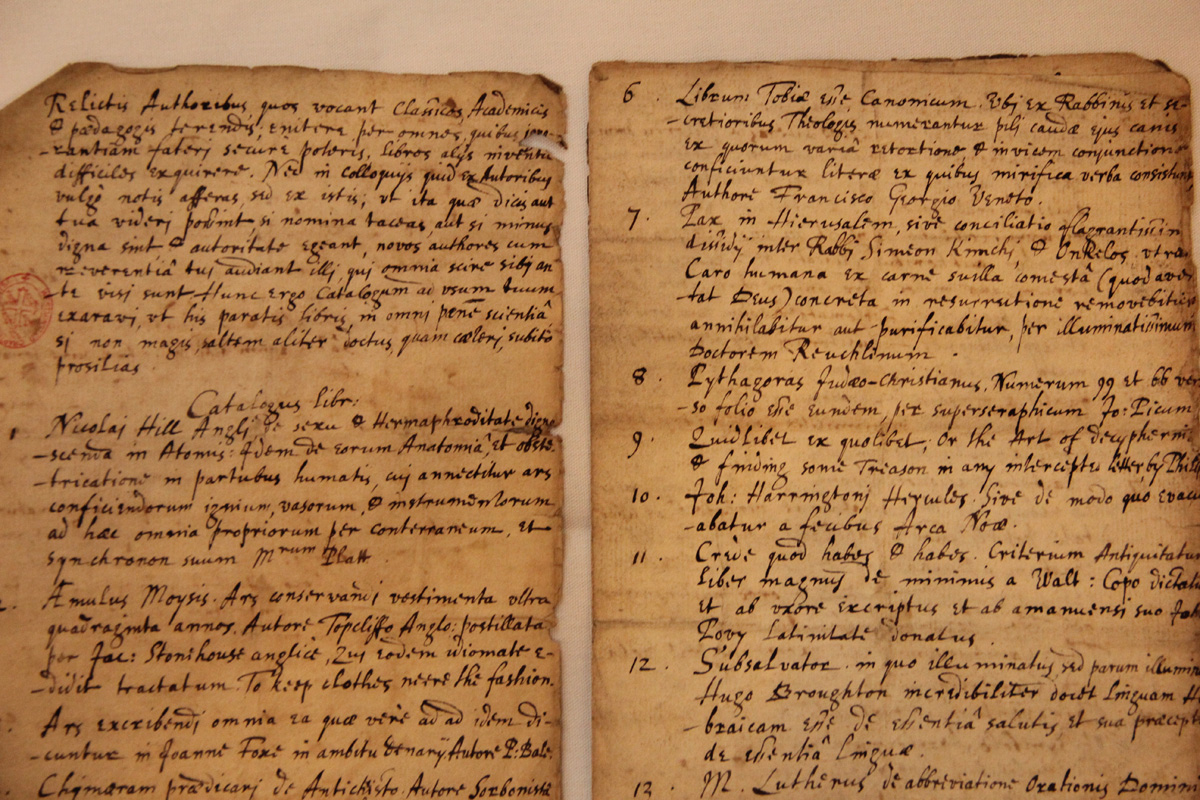 Relictis Authoribus quos vocant Classicos Academicis
& pædagogis terendis; enitere per omnes, quibus
-rantiam fateri secure poteris, libros alijs inventu
difficiles exquirere. Nec in colloquijs quid ex Autoribus
vulgò notis afferas, sed ex istis; ut ita quæ dicis aut
tua videri possint, si nomina taceas, aut si minus
digna sint & autoritate egeant, novos authores cum
reverentiâ tuj audiant illj quj omnia scire sibj an
-te visj sunt. Hunc ergo Catalogum ad usum tuum
exaravj, ut his paratis libris, in omni penè scientiâ
sj non magis, saltem aliter doctus, quam cæterj, subitò
prosilias.
Catalogus libr:
1 Nicolaj Hill Anglj de sexu & Hermaphroditate digno
-scenda in Atomis: Idem de eorum Anatomiâ, et obste-
tricatione in partubus humatis, cuj annectitur ars
conficiendorum ignium, vasorum, & instrumentorum
ad hæc omnia propriorum per conterraneum, et
synchronon suum Mrum Platt.
2. Æmulus Moysis. Ars conservandj vestimenta ultra
quadraginta annos. Autore Topcliffo Anglo: postillata
per Jac: Stonehouse anglicè, Quj eodem idiomate e-
-didit tractatum. To keep clothes neere the fashion.
Ars exscribendj omnia ea quæ verè ad ad idem di-
-cuntur in Joanne Foxe in ambitu denarij Autore P: Bale.
Chymæram prædicarj de Antichristo. Autore Sorbonistâ
6. Librum Tobiæ esse Canonicum. Ubj ex Rabbinis et se-
-cretioribus Theologis numerantur pilj caudæ ejus canis
ex quorum variâ retortione & in vicem conjunctione
conficiuntur literæ ex quibus mirifica verba consistunt
Authore Francisco Georgio Veneto.
7. Pax in Hierusalem, sive conciliatio flagrantissim
dissidij inter Rabbj Simeon Kimchj, & Onkelos, utrum
Caro humana ex carne suilla comestâ (quod aver
-tat Deus) concreta in resurrectione removebitur
annihilabitur aut purificabitur, per illuminatissimum
Doctorem Reuchlinum.
8. Pythagoras Judæo-Christianus, Numerum 99 et 66 ver
-so folio esse eundem, per superseraphicum Jo: Picum
9. Quidlibet ex quolibet; Or the Art of decypherin
& finding some Treason in any intercepted letter by Phil
10. Joh: Harringtonj Hercules. Sive de modo quo evacu
-abatur a fecibus Arca Noæ.
11. Crede quod habes & habes. Criterium Antiquitatum
Liber magnus de minimis a Walt: Copo dictatu
et ab uxore exscriptus et ab amanuensi suo Joh
Povy Latinitate donatus.
12. Subsalvator. in quo illuminatus, sed parum illumin
Hugo Broughton incredibiliter docet linguam H
-braicam esse de essentiâ salutis et sua præcept
de essentiâ linguæ.
13. M. Lutherus de abbreviatione Orationis Domini